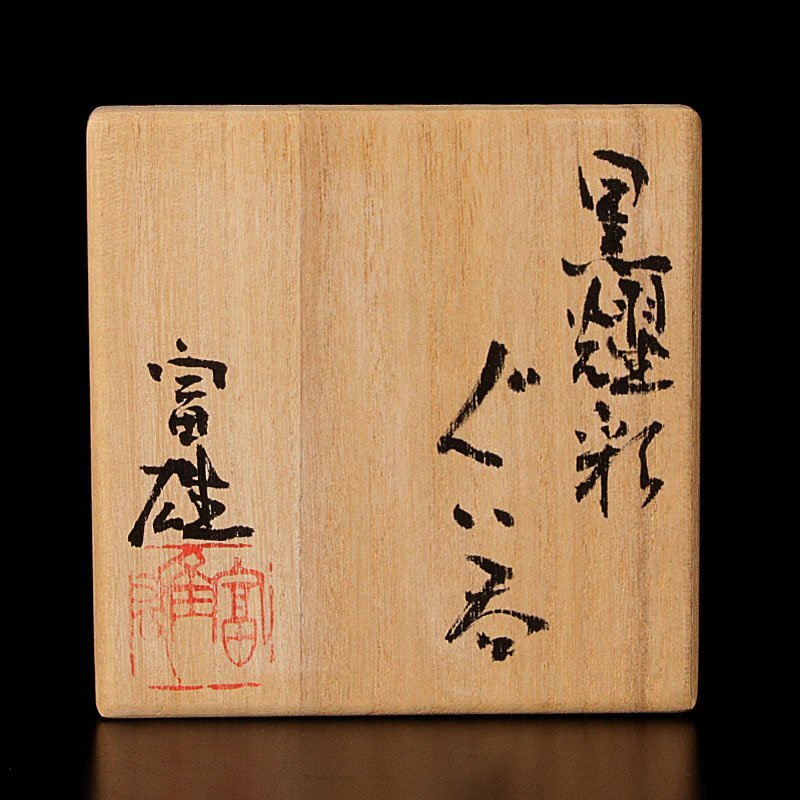 黒耀彩
ぐい呑
富雄